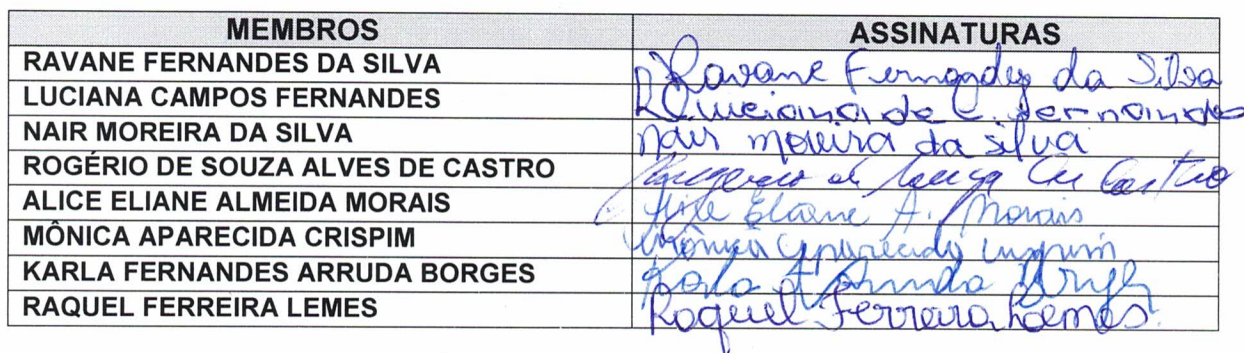 MEMBROS ASSINATURAS
RAVANE FERNANDES DA SILVA Ravane Fernandes da Silva
LUCIANA CAMPOS FERNANDES Luciana de C. Fernandes
NAIR MOREIRA DA SILVA Nair moreira da silva
ROGÉRIO DE SOUZA ALVES DE CASTRO de Castro
ALICE ELIANE ALMEIDA MORAIS Alice Eliane A. Morais
MÔNICA APARECIDA CRISPIM Mônica Aparecida Crispim
KARLA FERNANDES ARRUDA BORGES Karla F Arruda Borges
RAQUEL FERREIRA LEMES Raquel Ferreira Lemes.